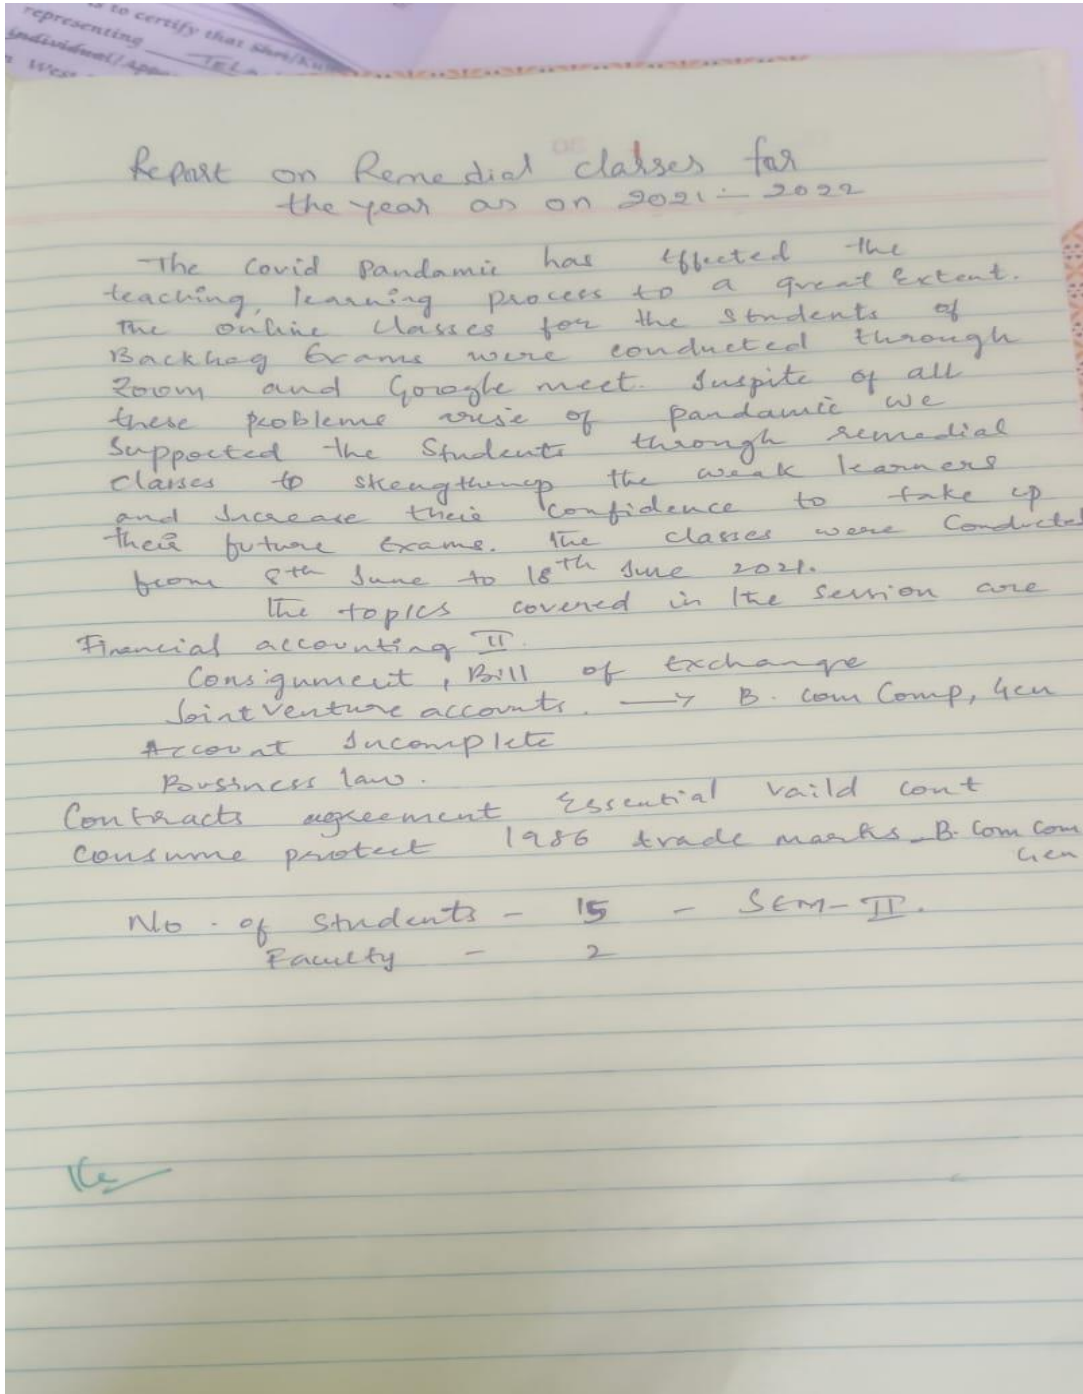 is to certify that Shri/Ku
representing TELA
individual/Appe
n West
Report on Remedial classes for
the year as on 2021 - 2022
The Covid Pandamic has Effected the
teaching, learning process to a great Extent.
The online Classes for the Students of
Backlog Exams were conducted through
Zoom and Google meet. Inspite of all
these problems arise of pandamic we
Supported the Students through remedial
classes to the weak learners
and Increase their confidence to take up
their future Exams. The classes were Conducted
from 8th June to 18th June 2021.
The topics covered in the Session are
Financial accounting II.
Consignment, Bill of Exchange
Joint Venture accounts. → B. com Comp, Gen
Account Incomplete
Bussiness law.
Contracts agreement Essential vaild cont
Consume protect 1986 trade marks - B. Com Com
Gen
No. of Students - 15 - SEM-II.
Faculty - 2